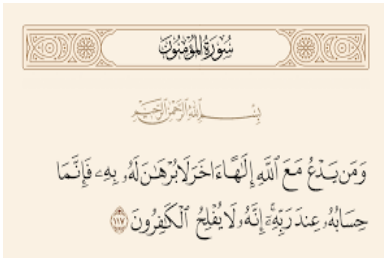 سُورَةُ المُؤۡمِنُونَ
بِسۡمِ ٱللَّهِ ٱلرَّحۡمَٰنِ ٱلرَّحِيمِ
وَمَن يَدۡعُ مَعَ ٱللَّهِ إِلَٰهًا ءَاخَرَ لَا بُرۡهَٰنَ لَهُۥ بِهِۦ فَإِنَّمَا
حِسَابُهُۥ عِندَ رَبِّهِۦٓۚ إِنَّهُۥ لَا يُفۡلِحُ ٱلۡكَٰفِرُونَ ١١٧